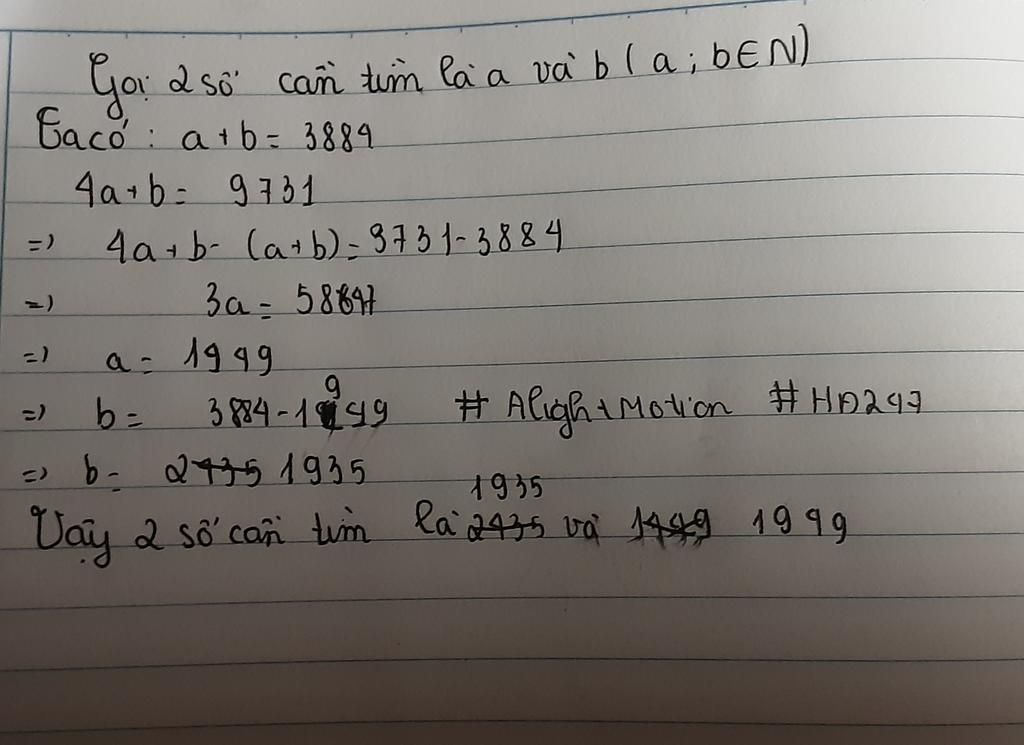 Gọi 2 số cần tìm là a và b ( a ; b ∈ N )
Ta có : a + b = 3884
4a + b = 9731
=> 4a + b - (a + b) = 9731 - 3884
=> 3a = 5847
=> a = 1949
=> b = 3884 - 1949 # Alight Motion # HD247
=> b = 2435 1935
Vậy 2 số cần tìm là 2435 1935 và 1449 1949